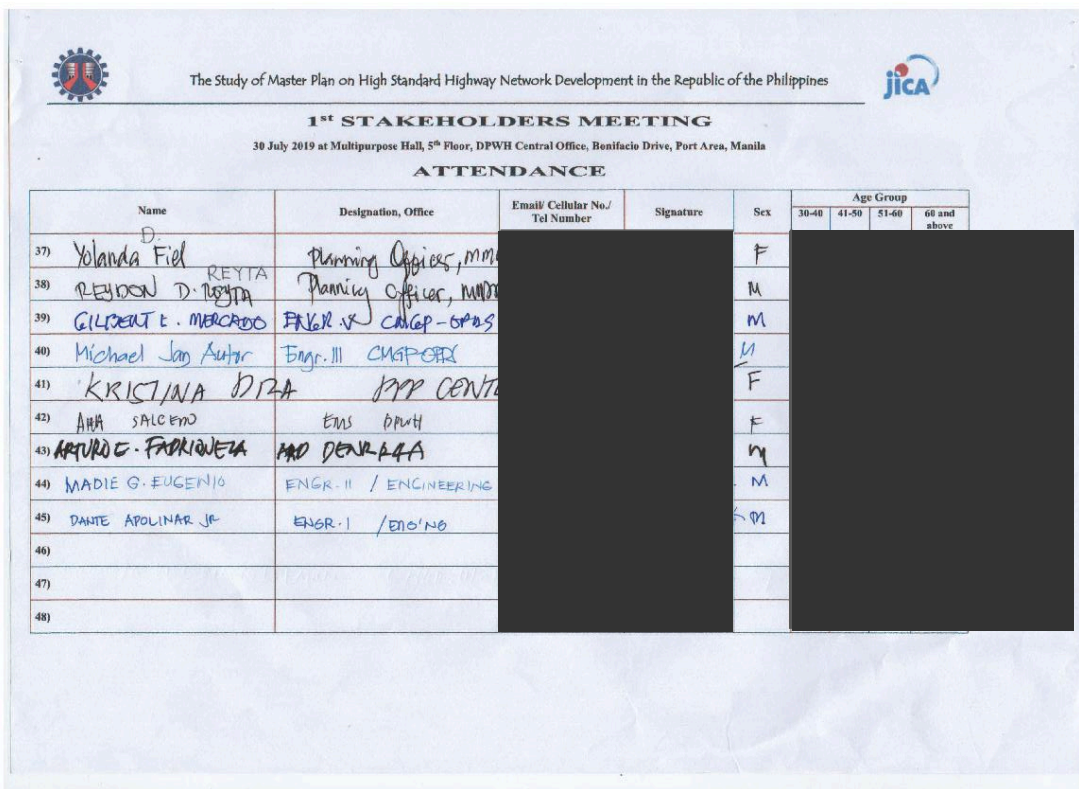 The Study of Master Plan on High Standard Highway Network Development in the Republic of the Philippines
jICA
1st STAKEHOLDERS MEETING
30 July 2019 at Multipurpose Hall, 5th Floor, DPWH Central Office, Bonifacio Drive, Port Area, Manila
ATTENDANCE
Name Designation, Office Email/ Cellular No./ Tel Number Signature Sex Age Group
30-40 41-50 51-60 60 and above
D.
37) Yolanda Fiel Planning Officer, F
REYTA
38) REYDON D. REYTA Planning Officer, M
39) GILBERT E. MERCADO ENGR. V CMGP-OPDS M
40) Michael Jan Autor Engr. III M
41) KRISTINA F
42) SALCEDO EMS DPWH F
43) ARTURO E. M
44) MADIE G. EUGENIO ENGR. II / ENGINEERING M
45) DANTE APOLINAR JR ENGR. I / ENG'NG M
46)
47)
48)